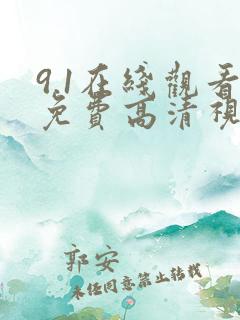 9.1在綫觀看
免費高清視
郭安
未经同意禁止转载